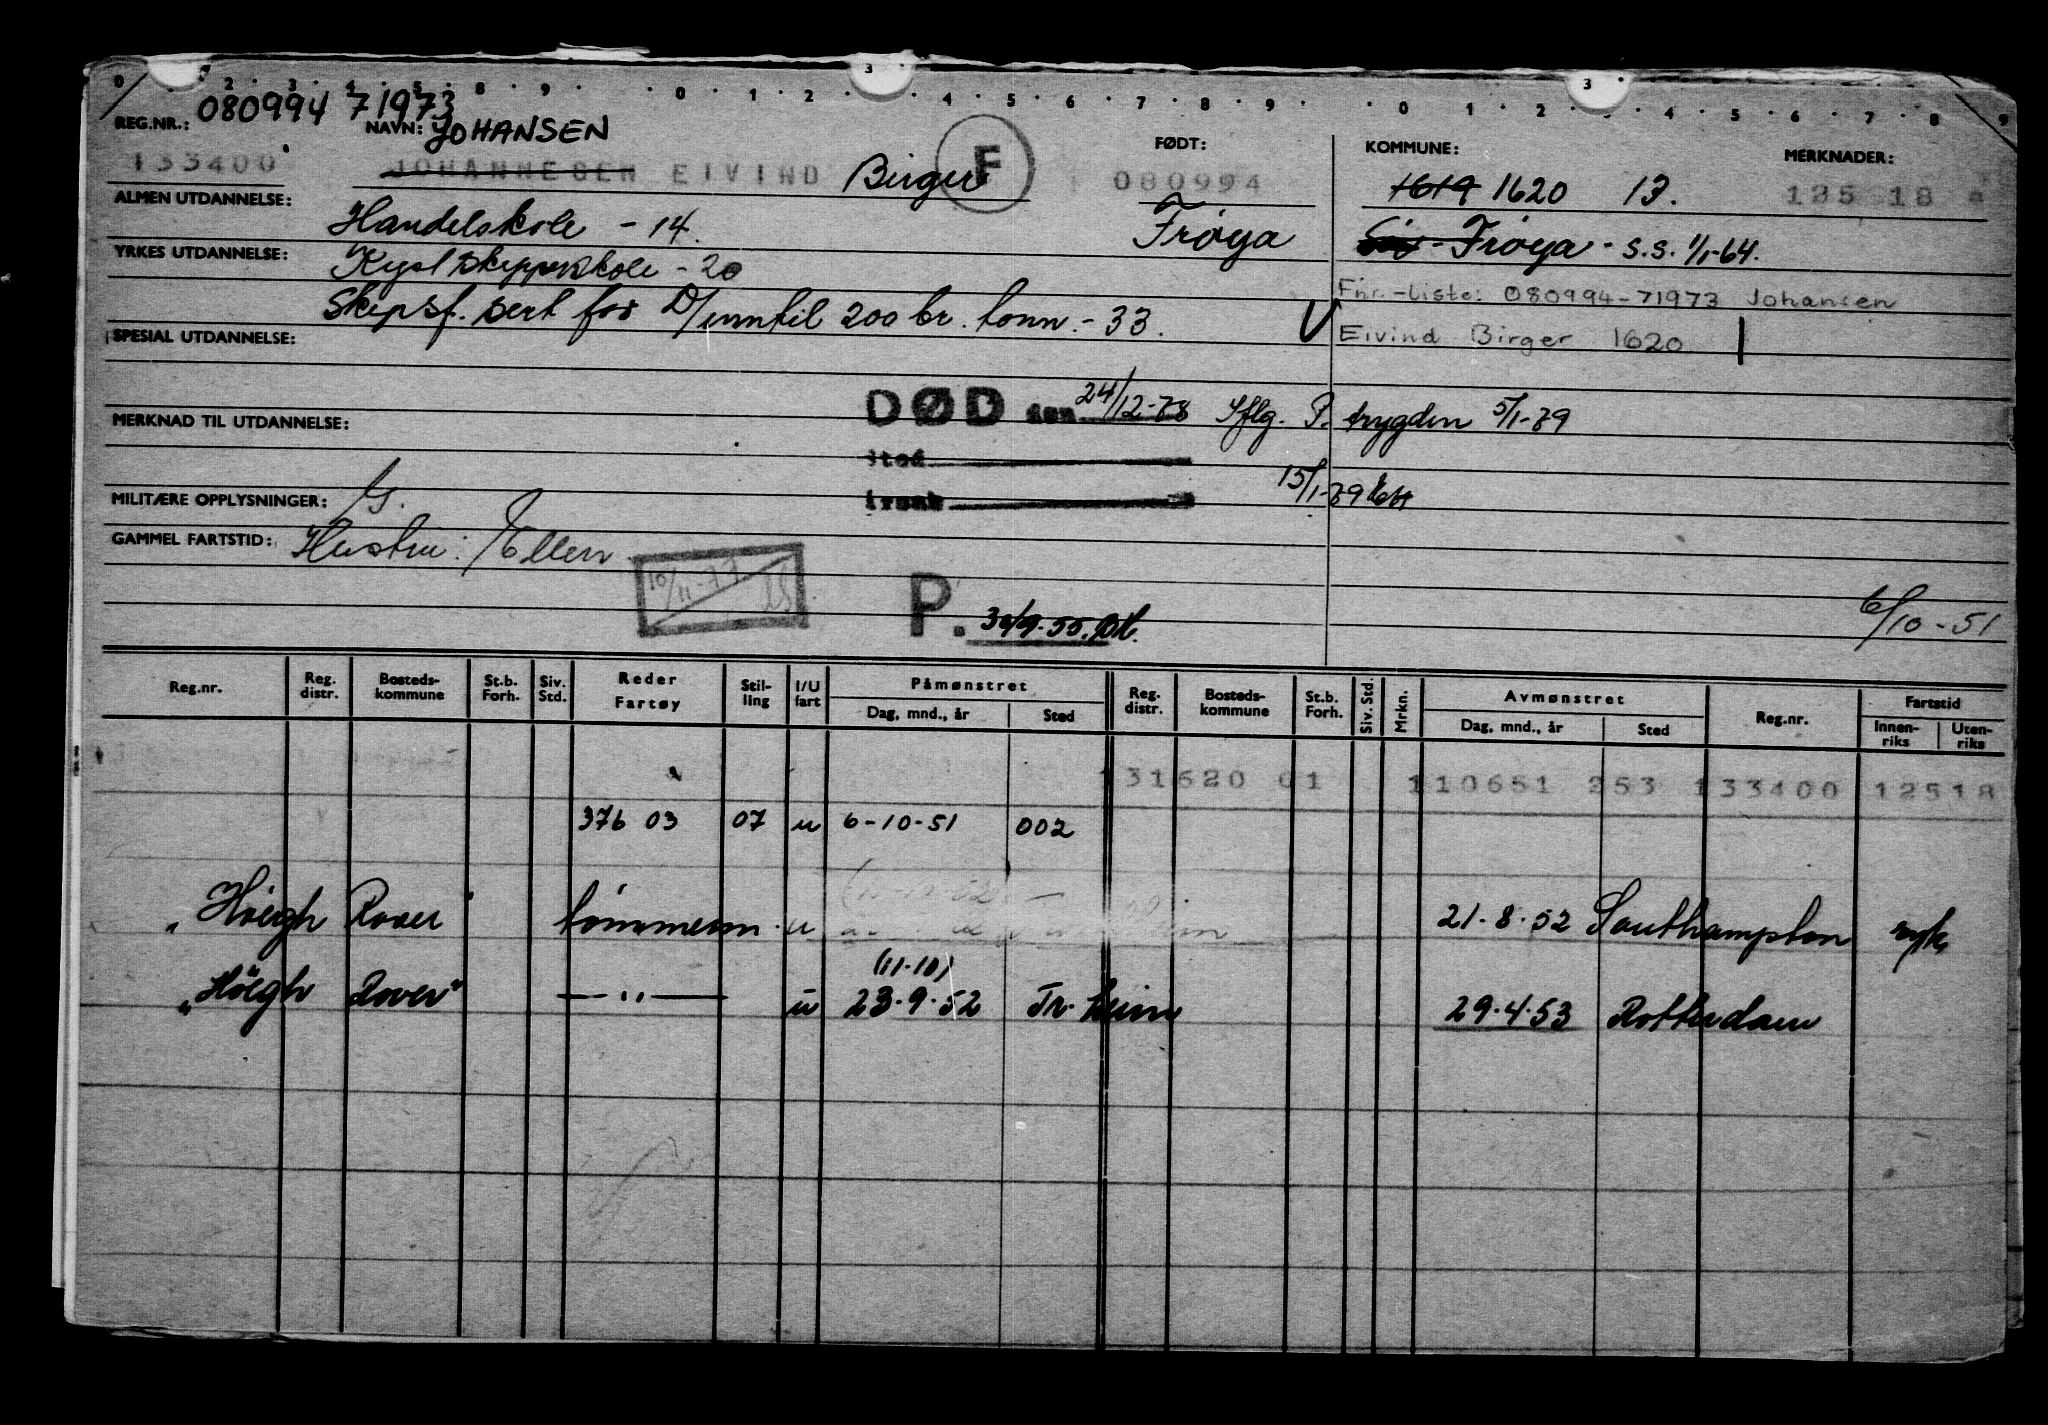 0 2 3 4 5 8 9 0 1 2 3 4 5 6 7 8 9 0 1 2 3 4 5 6 7 8 9
080994 71973
REG.NR.: NAVN: JOHANSEN FØDT: KOMMUNE: MERKNADER:
133400 JOHANNESEN EIVIND Birger F 080994 1619 1620 13. 125 18
ALMEN UTDANNELSE: Handelskole - 14. Frøya Frøya - s.s. 1/1-64.
YRKES UTDANNELSE: Kystskipperskole - 20
Fnr.-liste: 080994-71973 Johansen
Skipsf. sert for D/ inntil 200 br. tonn. - 33. V
Eivind Birger 1620
SPESIAL UTDANNELSE:
DØD den 24/12-78 Iflg. P. trygden 5/1-79
MERKNAD TIL UTDANNELSE:
sted
15/1-79
MILITÆRE OPPLYSNINGER: G. årsak
GAMMEL FARTSTID: Hustru: Ellen
10/11-77
P. 30/9-55.
6/10-51
Reg.nr. Reg. distr. Bosteds-kommune St.b. Forh. Siv. Std. Reder Fartøy Stil-ling I/U fart Påmønstret Dag, mnd., år Sted Reg. distr. Bosteds-kommune St.b. Forh. Siv. Std. Mrkn. Avmønstret Dag, mnd., år Sted Reg.nr. Fartstid Innen-riks Uten-riks
31620 01 110651 253 133400 12518
376 03 07 u 6-10-51 002
"Höegh Rover" tømmerm. u 21.8.52 Southampton syk
(11.10)
"Höegh Rover" — " — u 23.9.52 Tr.heim 29.4.53 Rotterdam